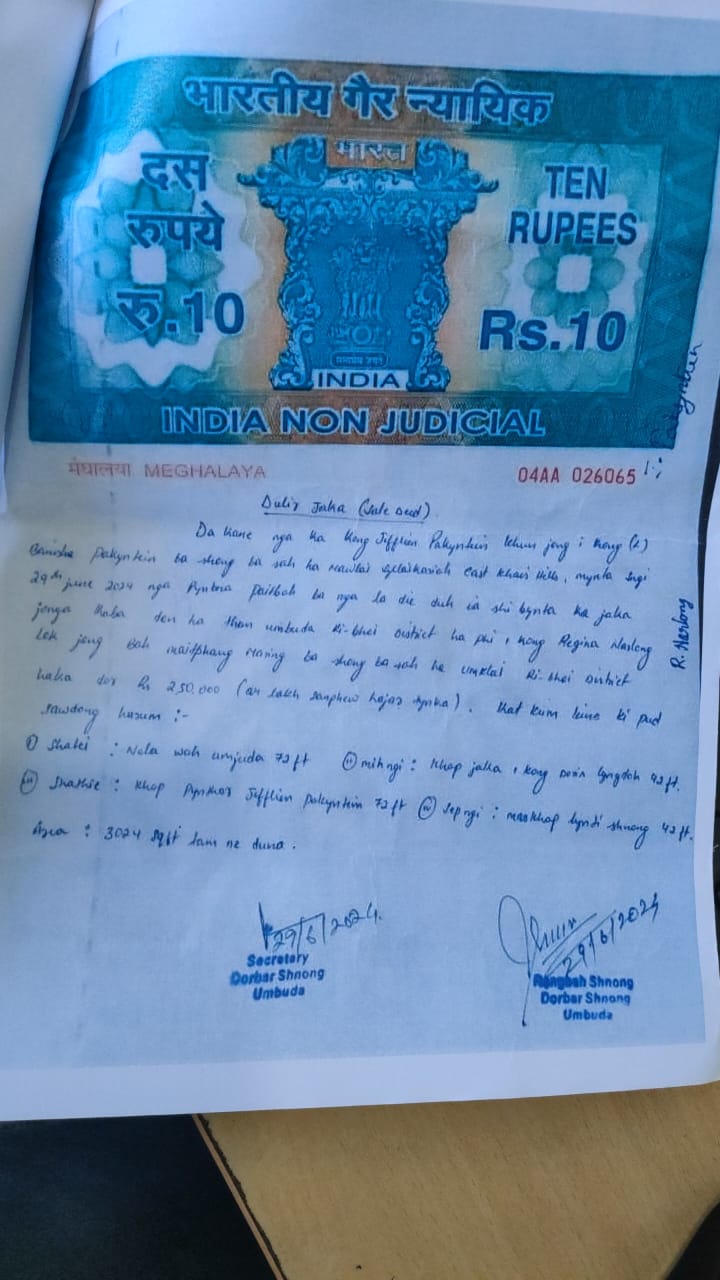 भारतीय गैर न्यायिक
भारत
दस
रुपये
रु.10
TEN
RUPEES
Rs.10
सत्यमेव जयते
INDIA
INDIA NON JUDICIAL
मेघालया MEGHALAYA
04AA 026065
Dulir Jaka (Sale Deed).
Da kane nga ka Kong Jifflien Pakyntein khun jong i Kong (L)
Pakyntein ba shong ba sah ha Mawlai East Khasi Hills, mynta sngi
29th June 2024 nga paitbah ba nga la die duh ia shi bynta ka jaka
jonga kaba don ha than umbuda Ri-bhoi District ha phi, Kong Regina Narlong
Lok jong Bah Maring ba shong ba sah ha Umktai Ri-bhoi District
haka dor Rs 250,000 (ar lakh sanphew hajar tyngka). kat kum kine ki pud
sawdong harum :-
(i) Shatei : Nala wah umjuda 72 ft (ii) mihngi : khap jaka i kong lyngdoh 42 ft.
(iii) Shathie : khap Jifflien Pakyntein 72 ft (iv) sepngi : lynti shnong 42 ft.
Area : 3024 sqft lam ne duna.
R. Narlong
29/6/2024.
Secretary
Dorbar Shnong
Umbuda
29/6/2024
Rangbah Shnong
Dorbar Shnong
Umbuda